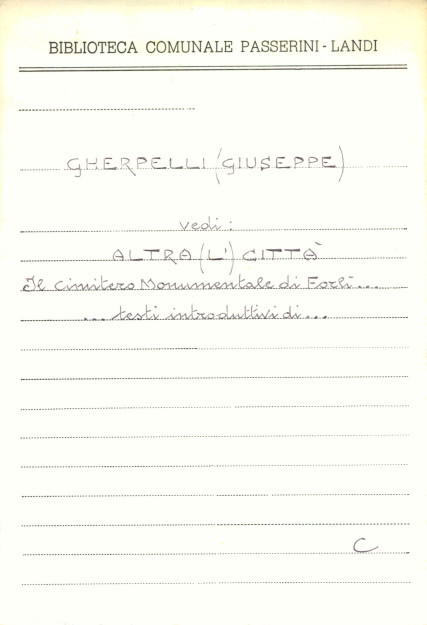 BIBLIOTECA COMUNALE PASSERINI - LANDI
GHERPELLI (GIUSEPPE)
vedi:
ALTRA (L') CITTÀ
Il cimitero Monumentale di Forlì...
... testi introduttivi di...
C